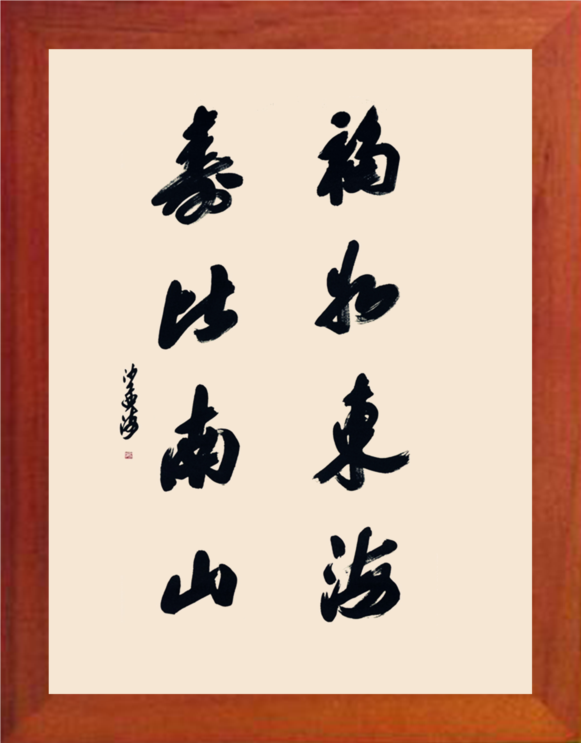 福如東海
壽比南山
沙孟海